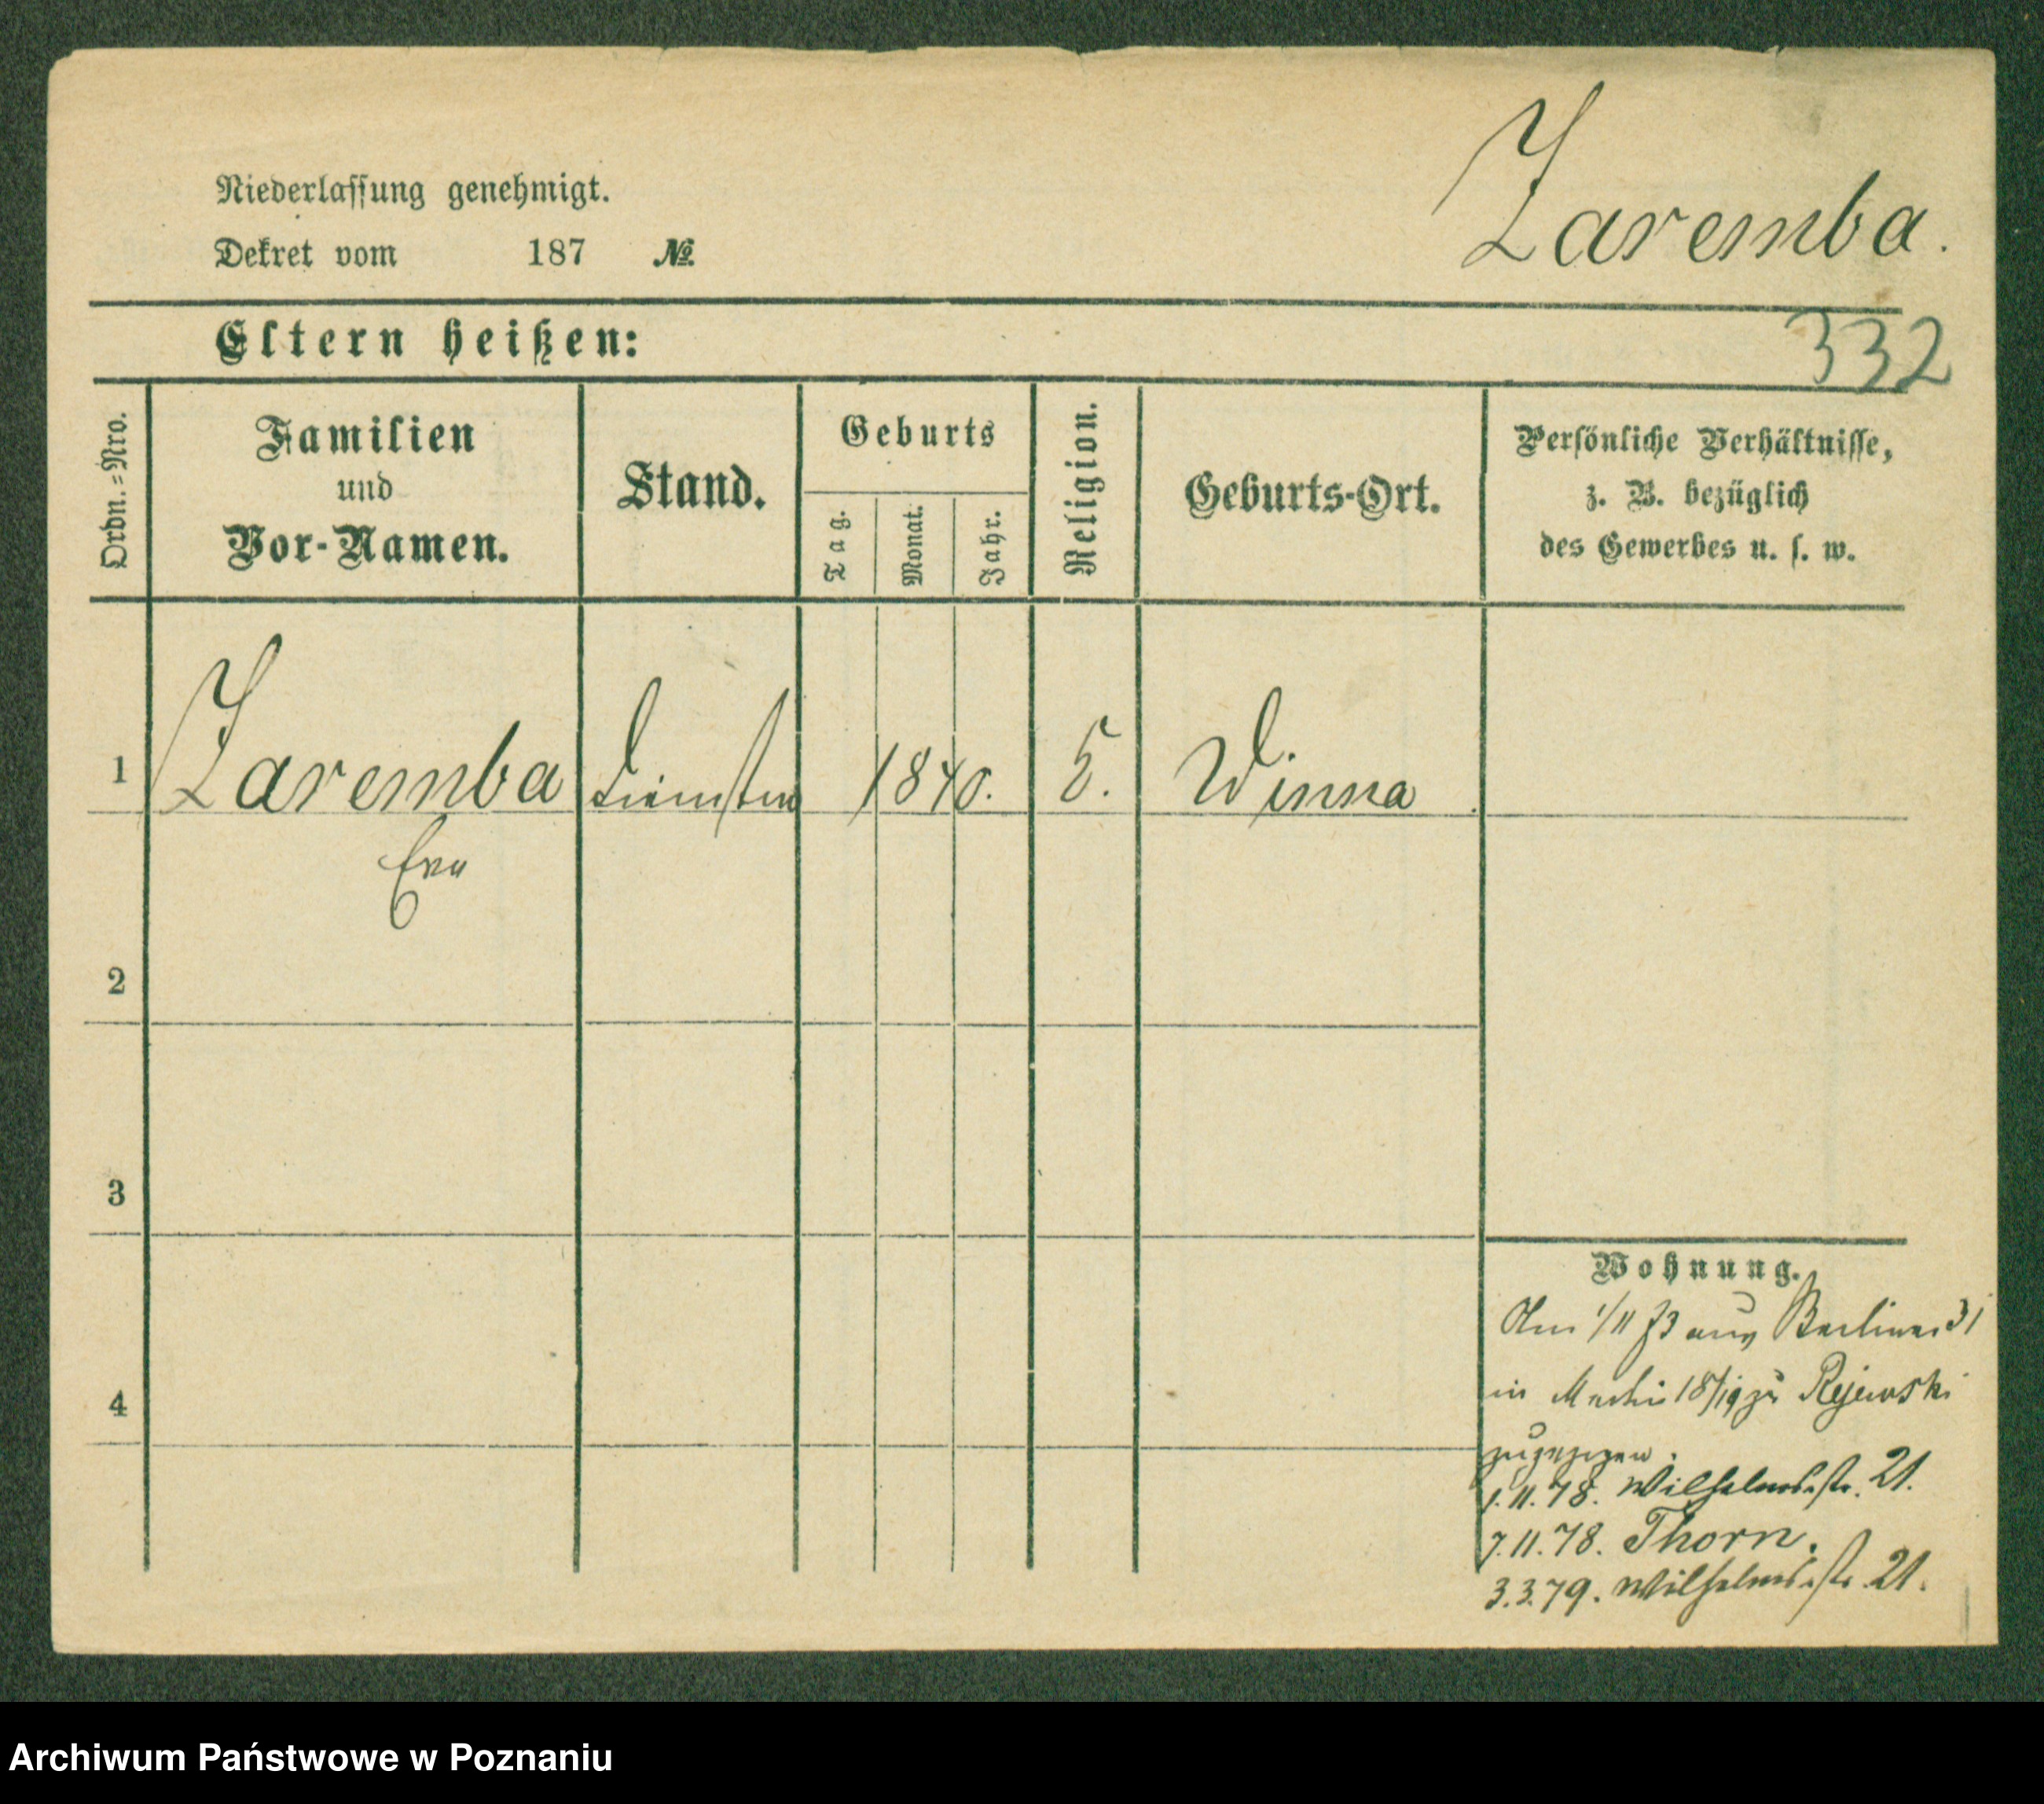 Niederlassung genehmigt.
Dekret vom 187 №
Zaremba.
Eltern heißen:
332
Ordn.=Nro.
Familien
und
Vor-Namen.
Stand.
Geburts
Tag.
Monat.
Jahr.
Religion.
Geburts-Ort.
Persönliche Verhältnisse,
z. B. bezüglich
des Gewerbes u. s. w.
1 Zaremba 1840. Winna
Eva
2
3
4
Wohnung.
Am 1/11 73 aus Berliner 31
in 18/19 zu Rejewski
zugezogen.
1.11.78. Wilhelmsstr. 21.
7.11.78. Thorn.
3.3.79. Wilhelmsstr. 21.
Archiwum Państwowe w Poznaniu